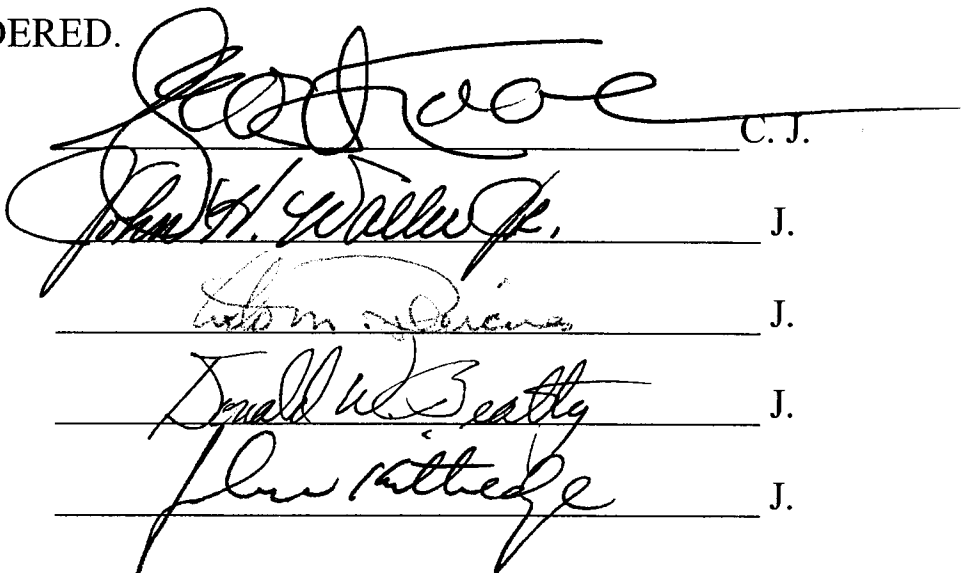 DERED.
C. J.
John H. Waller Jr. J.
J.
Donald W. Beatty J.
John Kittredge J.